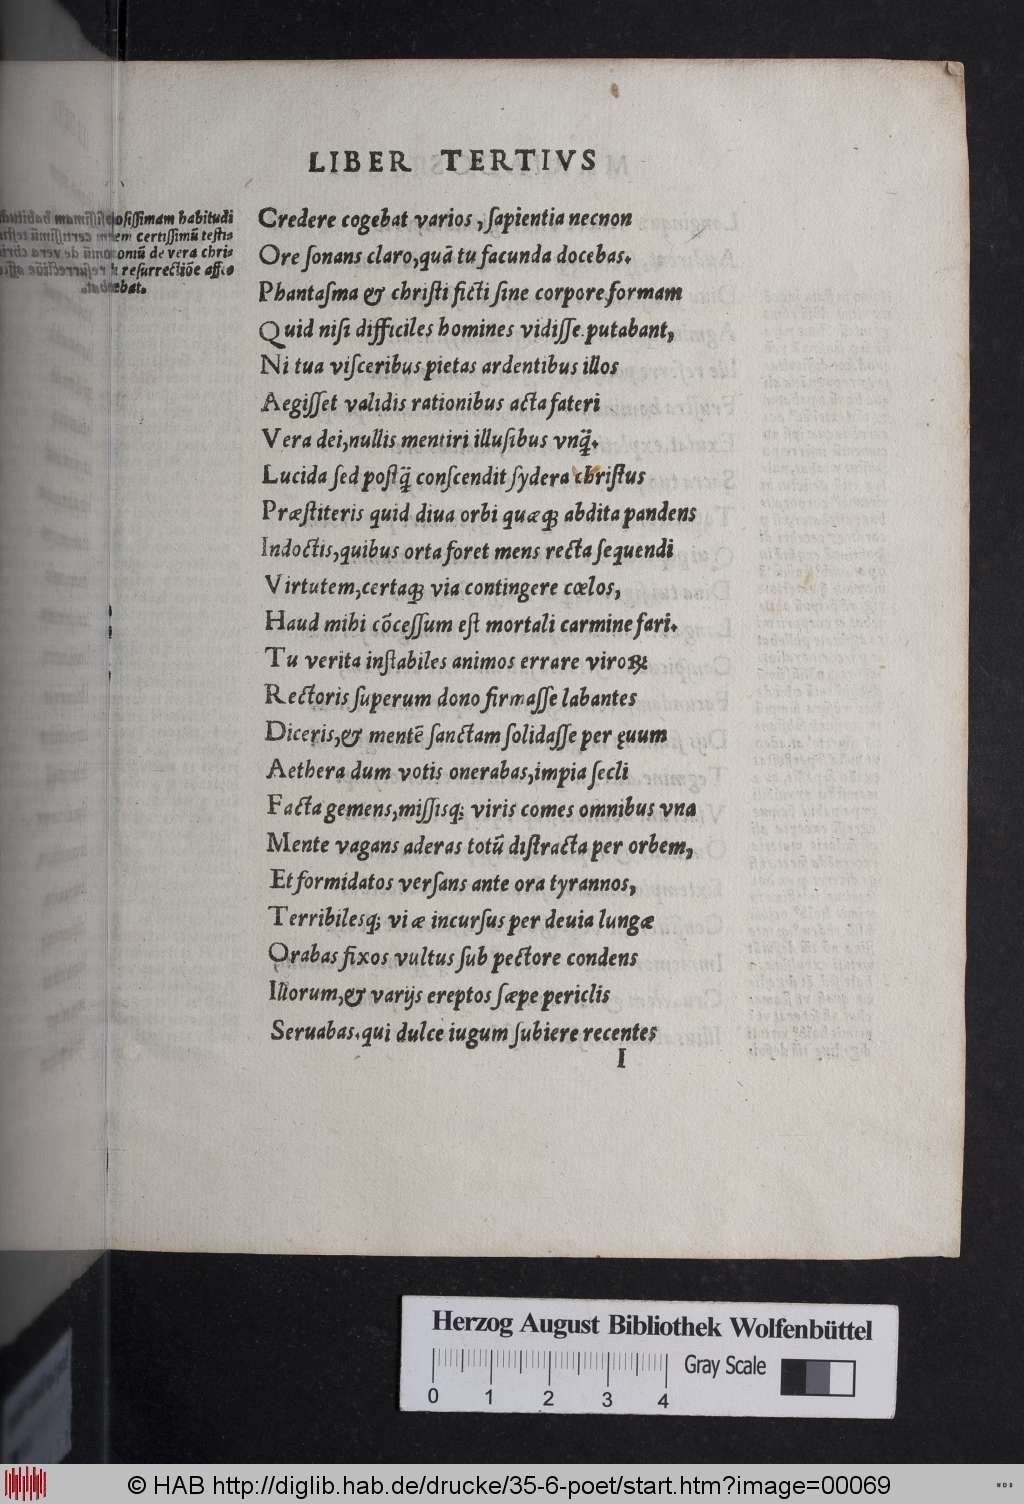 LIBER TERTIVS
osissimam habitudi
em certissimũ testi⸗
oniũ de vera chri⸗
resurrectiõe affir⸗
bat.
Credere cogebat varios, sapientia necnon
Ore sonans claro, quã tu facunda docebas.
Phantasma & christi ficti sine corpore formam
Quid nisi difficiles homines vidisse putabant,
Ni tua visceribus pietas ardentibus illos
Aegisset validis rationibus acta fateri
Vera dei, nullis mentiri illusibus vnq̃.
Lucida sed postq̃ conscendit sydera christus
Præstiteris quid diua orbi quæq; abdita pandens
Indoctis, quibus orta foret mens recta sequendi
Virtutem, certaq; via contingere cœlos,
Haud mihi cõcessum est mortali carmine fari.
Tu verita instabiles animos errare viroꝝ
Rectoris superum dono firmasse labantes
Diceris, & mentẽ sanctam solidasse per ęuum
Aethera dum votis onerabas, impia secli
Facta gemens, missisq; viris comes omnibus vna
Mente vagans aderas totũ distracta per orbem,
Et formidatos versans ante ora tyrannos,
Terribilesq; viæ incursus per deuia lungæ
Orabas fixos vultus sub pectore condens
Illorum, & varijs ereptos sæpe periclis
Seruabas. qui dulce iugum subiere recentes
I
Herzog August Bibliothek Wolfenbüttel
Gray Scale
0 1 2 3 4
© HAB http://diglib.hab.de/drucke/35-6-poet/start.htm?image=00069